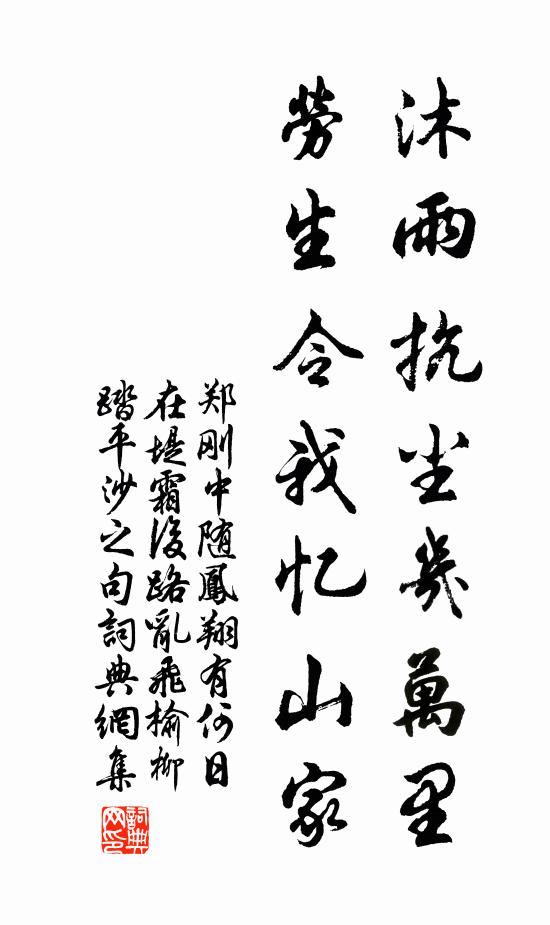 沐雨抗尘幾萬里
劳生令我忆山家
郑刚中随鳳翔有何日
在堤霜後路亂飛榆柳
踏平沙之句詞典網集
詞典
网印